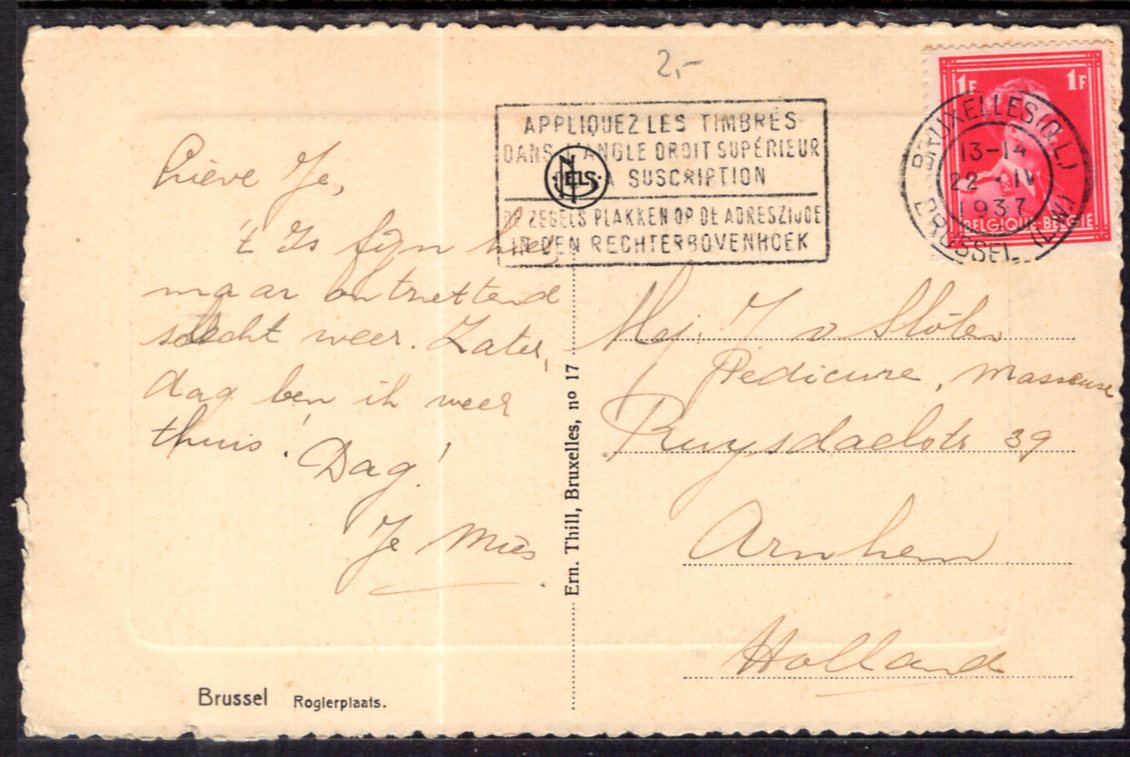 2,-
APPLIQUEZ LES TIMBRES
DANS L'ANGLE DROIT SUPÉRIEUR
DE LA SUSCRIPTION
DE ZEGELS PLAKKEN OP DE ADRESZIJDE
IN DEN RECHTERBOVENHOEK
NELS
1F 1F
BELGIQUE-BELGIE
BRUXELLES (Q.L.)
13-14
22 · IV
1937
BRUSSEL (L.W.)
Lieve Je,
't Is fijn hier
maar ontzettend
slecht weer. Zater,
dag ben ik weer
thuis! Dag!
Je Mies
Ern. Thill, Bruxelles, nº 17
Mej. J. v
Pedicure, Masseuse
Ruysdaelstr 39
Arnhem
Holland
Brussel Rogierplaats.